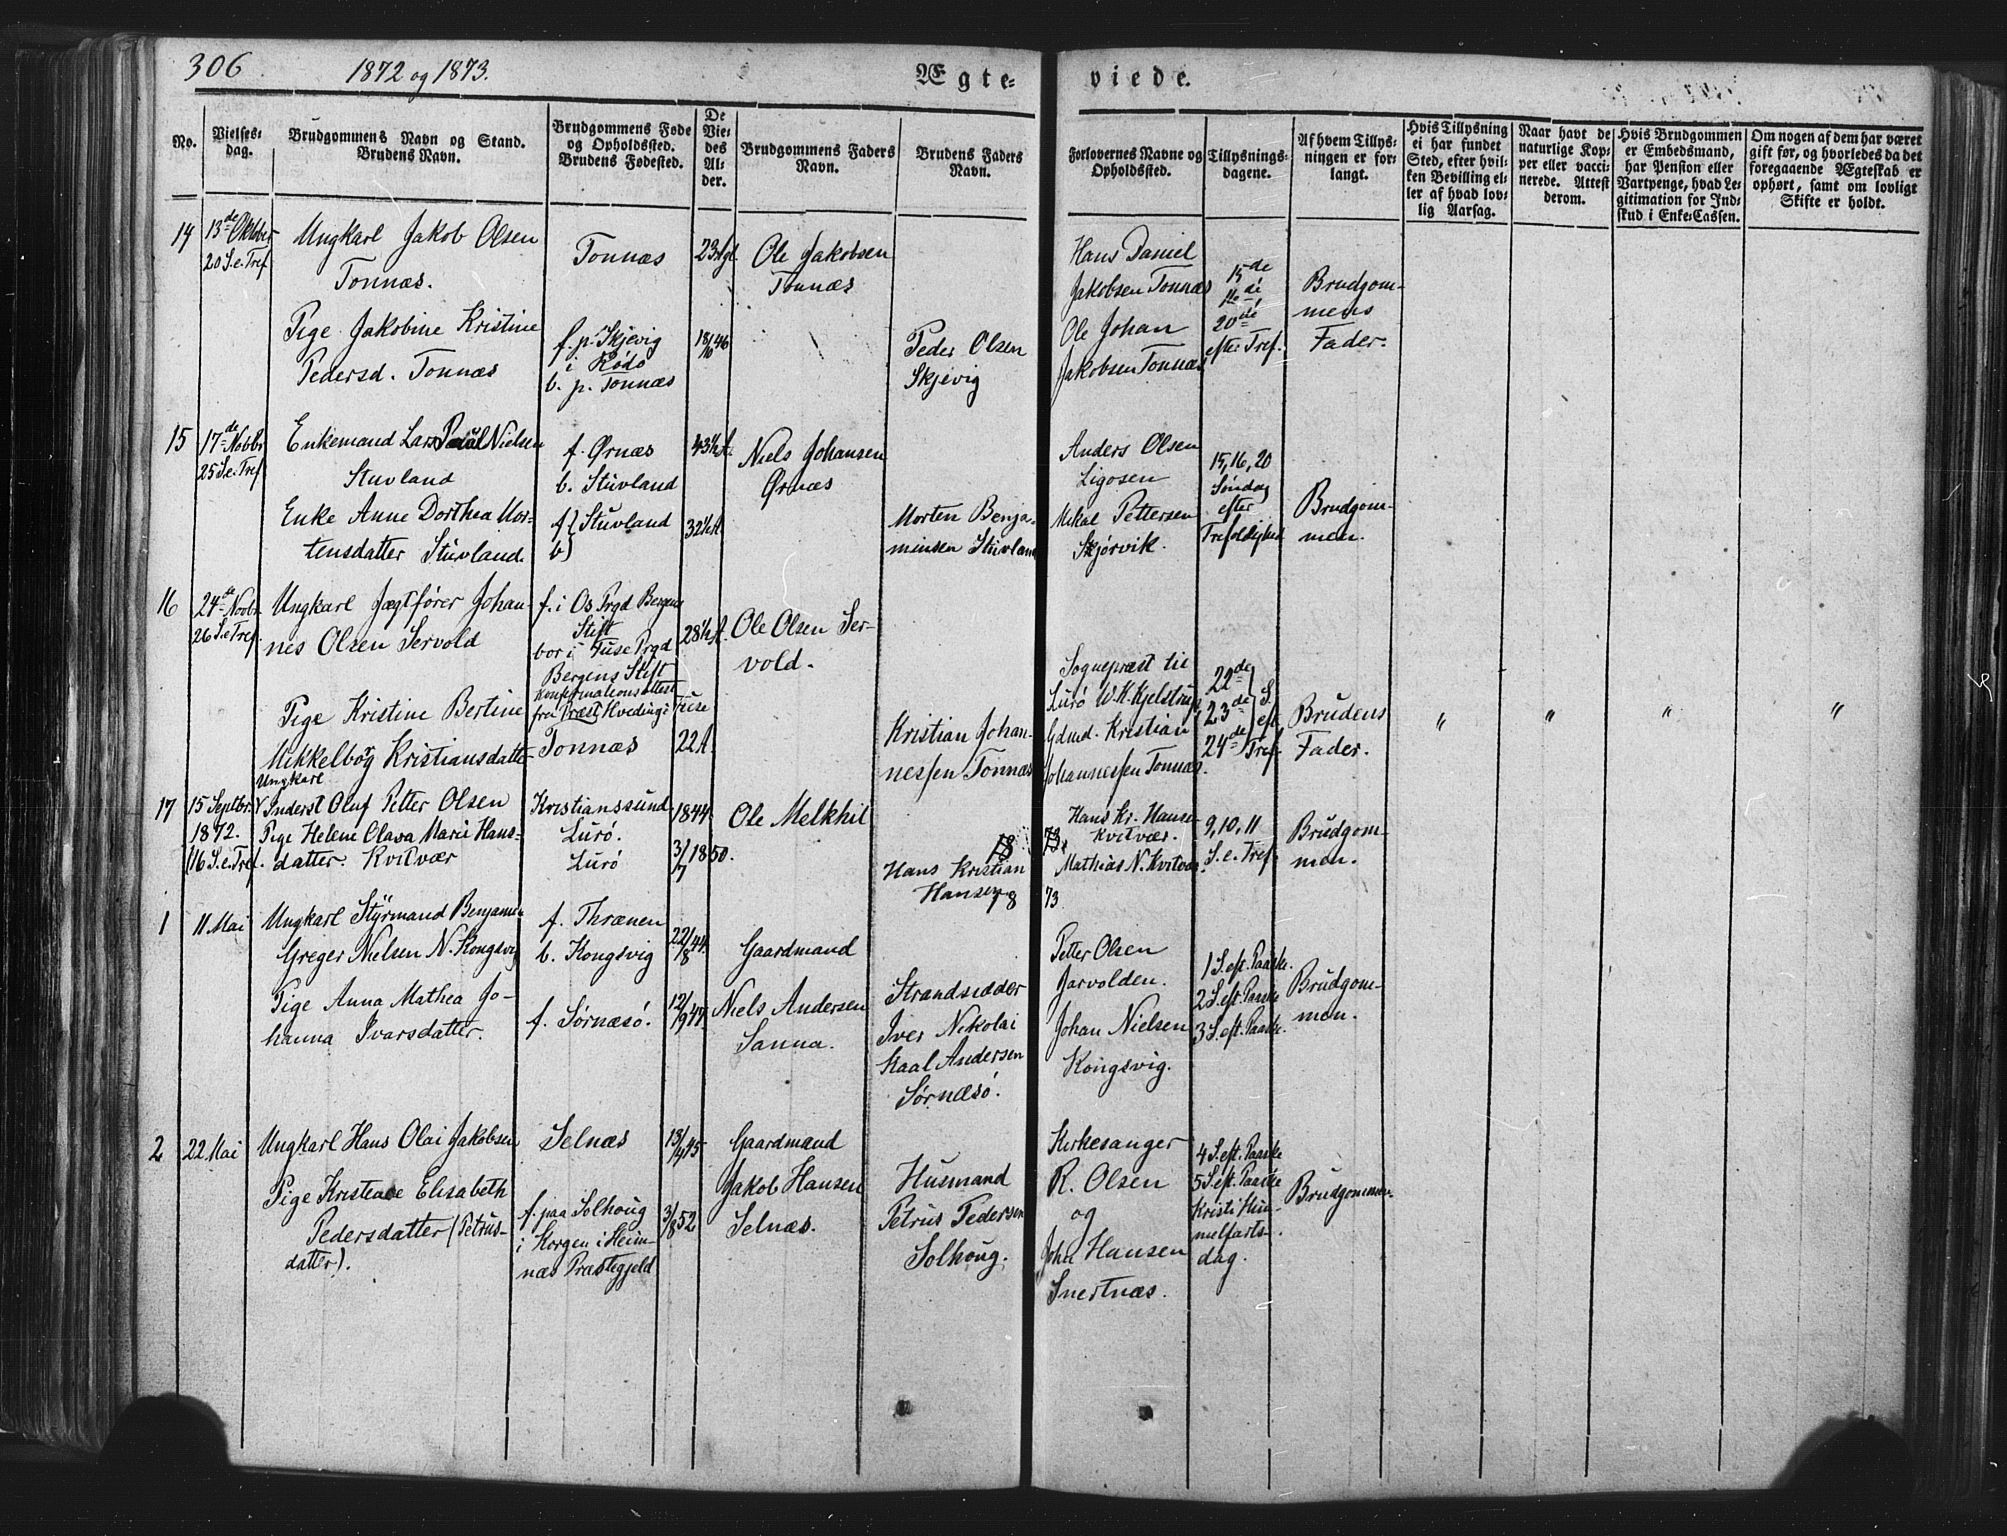 306 1872 og 1873. Ægte= viede.
No.
Vielses=
dag.
Brudgommens Navn og Stand.
Brudens Navn.
Brudgommens Føde
og Opholdssted.
Brudens Fødested.
De
Vie=
des
Al=
der.
Brudgommens Faders
Navn.
Brudens Faders
Navn.
Forlovernes Navne og
Opholdssted.
Tillysnings=
dagene.
Af hvem Tillys=
ningen er for=
langt.
Hvis Tillysning
ei har fundet
Sted, efter hvil=
ken Bevilling el=
ler af hvad lov=
lig Aarsag.
Naar havt de
naturlige Kop=
per eller vacci=
nerede. Attest
derom.
Hvis Brudgommen
er Embedsmand,
har Pension eller
Vartpenge, hvad Le=
gitimation for Ind=
skud i Enke=Cassen.
Om nogen af dem har været
gift før, og hvorledes da det
foregaaende Ægteskab er
ophørt, samt om lovligt
Skifte er holdt.
14
13de Oktober
20 S.e. Tref
Ungkarl Jakob Olsen
Tonnæs.
Pige Jakobine Kristine
Pedersd. Tonnæs
Tonnæs
f. p. Skjevig
i Rødø
b. p. Tonnæs
18/10 46
Ole Jakobsen
Tonnæs
Peder Olsen
Skjevig
Hans Daniel
Jakobsen Tonnæs
Ole Johan
Jakobsen Tonnæs
15de
16de
20de
efter Tref.
Brudgom-
mens
Fader.
15
17de Novbr
25 S.e. Tref
Enkemand Lars Paul Nielsen
Stuvland
Enke Anne Dorthea Mor-
tensdatter Stuvland.
f. Ørnæs
b. Stuvland
f } Stuvland
b )
43½ A.
32½ A
Niels Johansen
Ørnæs
Morten Benja-
minsen Stuvland
Anders Olsen
Ligosen
Mikal Pettersen
Skjørvik.
15, 16, 20
Søndag
efter
Trefoldighed
Brudgom-
men.
16
24de Novbr.
26 S.e. Tref.
Ungkarl Jægtfører Johan-
nes Olsen Servold
Pige Kristine Bertine
Mikkelbøg Kristiansdatter
f. i Os Prgd Bergens
Stift
bor i Fuse Prgd
Bergens Stift
Konfirmationsattest
fra Præst Kveding i Fuse
Tonnæs
28½ A.
22 A.
Ole Olsen Ser-
vold.
Kristian Johan-
nessen Tonnæs
Sognepræst til
Lurø W.K. Kjelstrup,
Gdmd. Kristian
Johannessen Tonnæs.
22de
23de
24de
S.
eft.
Tref.
Brudens
Fader.
" " " "
17
15 Septbr.
1872.
(16 S.e. Tref.
Ungkarl
Inderst Oluf Petter Olsen
Pige Helene Olava Marie Hans-
datter. Kvitvær
Kristianssund.
Lurø.
Lurø
1844.
3/7 1850.
Ole Melkhil
Hans Kristian
Hansen
Hans Kr. Hanse-
Kvitvær.
Mathias N. Kvitvær.
9, 10, 11
S. e. Tref.
Brudgom-
men.
18 73
1
11 Mai
Ungkarl Styrmand Benjamin
Greger Nielsen N. Kongsvig
Pige Anna Mathea Jo-
hanna Ivarsdatter.
f. Thrænen
b. Kongsvig
f. Sørnæsø.
22/8 44.
12/9 47.
Gaardmand
Niels Andersen
Sanna.
Strandsidder
Iver Nikolai
Kaal Andersen
Sørnæsø.
Petter Olsen
Jarvolden.
Johan Nielsen
Kongsvig.
1 S. eft. Paaske.
2 S. eft. Paaske
3 S. eft. Paaske.
Brudgom-
men.
2
22 Mai
Ungkarl Hans Olai Jakobsen
Pige Elisabeth
Pedersdatter (Petrus-
datter).
Selnæs
f. paa Solhoug
i Korgen i Hem-
næs Præstegjeld
13/4 45
3/8 52
Gaardmand
Jakob Hansen
Selnæs.
Husmand
Petrus Pedersen
Solhoug.
Kirkesanger
R. Olsen
og
John Hansen
Snertnæs.
4 S. eft. Paaske
5 S. eft. Paaske
Kristi Him-
melfarts-
dag.
Brudgommen.